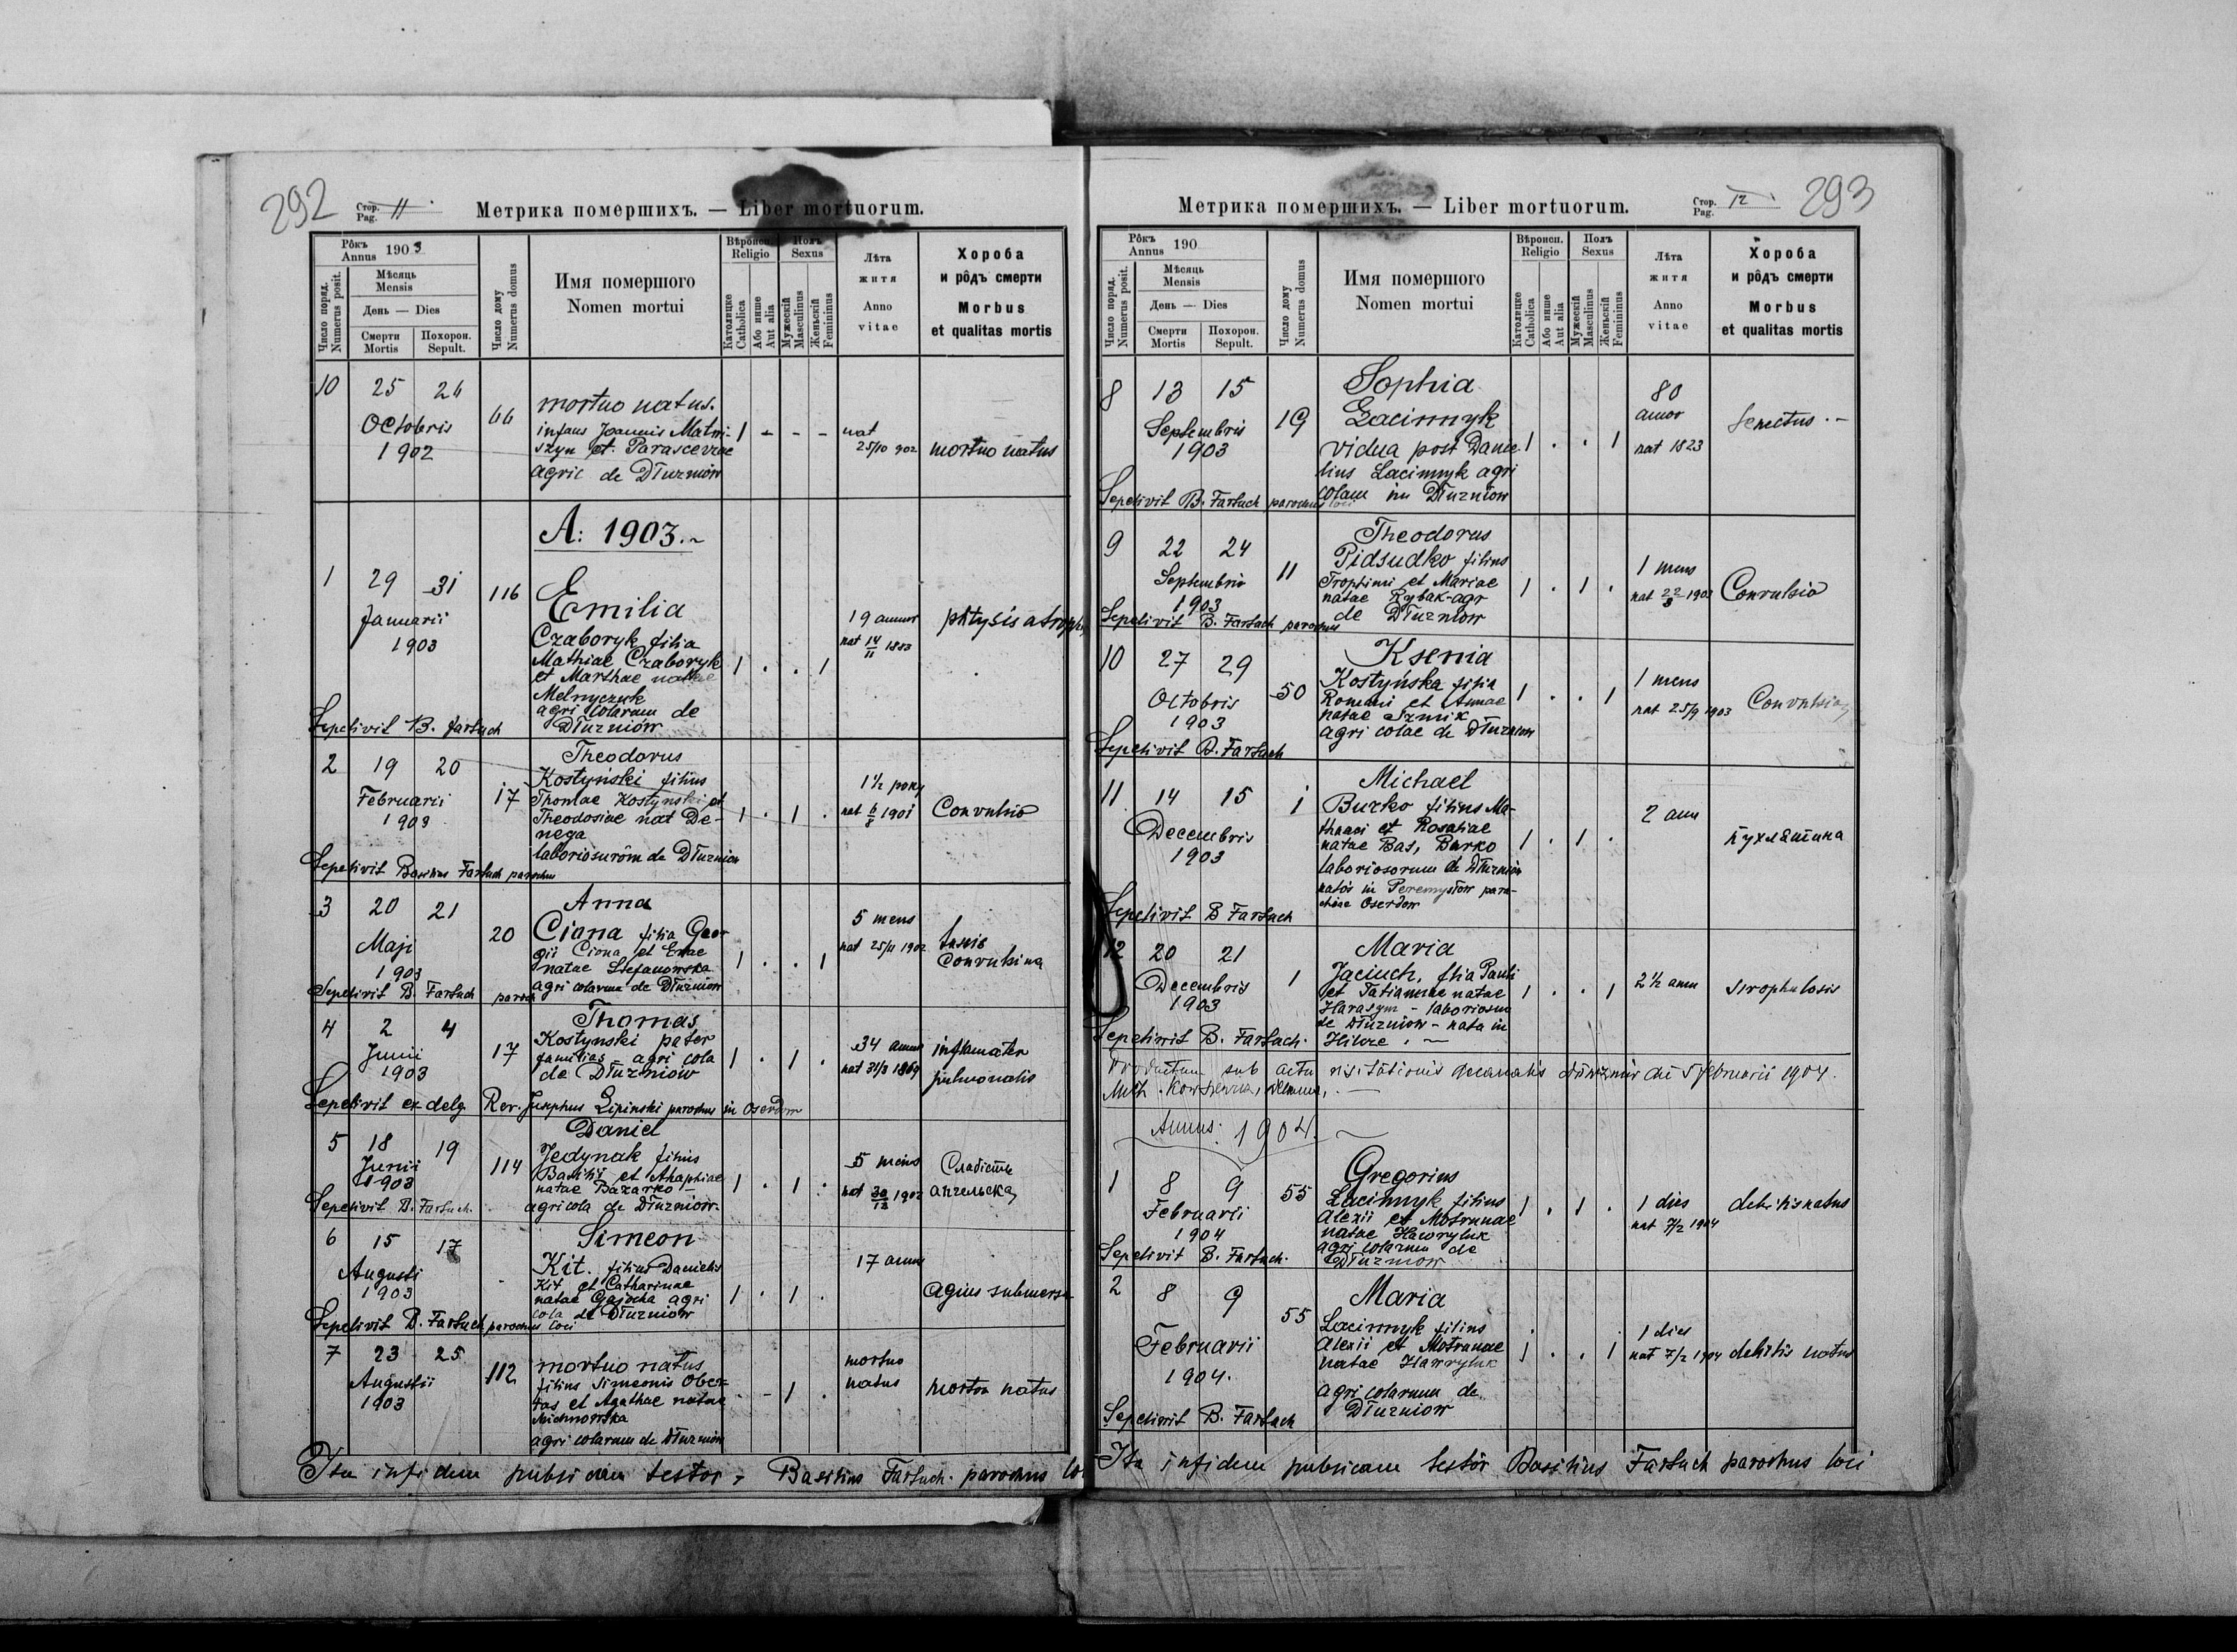 292
Стор. Pag. 11
Метрика помершихъ. — Liber mortuorum.
Рôкъ Annus 1903
Число поряд. Numerus posit.
Мѣсяць Mensis
День — Dies
Смерти Mortis
Похорон. Sepult.
Число дому Numerus domus
Имя помершого Nomen mortui
Вѣроисп. Religio
Католицке Catholica
Або инше Aut alia
Полъ Sexus
Мужескій Masculinus
Женьскій Femininus
Лѣта житя Anno vitae
Хороба и рôдъ смерти Morbus et qualitas mortis
10 25 26 Octobris 1902 66
mortuo natus.
infans Joannis Matwi-
szyn et Parascevae
agric de Dłużniów
1 - - -
nat 25/10 902
mortuo natus
A: 1903.
1 29 31 Januarii 1903 116
Emilia
Czaboryk filia
Mathiae Czaboryk
et Marthae natae
Melnyczuk
agricolarum de
Dłużniów
1 . . 1
19 annor
nat 14/11 1883
phtysis
Sepelivit B. Fartuch
2 19 20 Februarii 1903 17
Theodorus
Kostyński filius
Thomae Kostynski et
Theodosiae nat De-
nega
laboriosurôm de Dłużniow
1 . 1 .
1½ року
nat 6/8 1901
Convulsio
Sepelivit Basilius Fartuch parochus
3 20 21 Maji 1903 20
Anna
Ciona filia Geor
gii Ciona et Evae
natae Stefanowska
agricolarum de Dłużniow
1 . . 1
5 mens
nat 25/11 1902
tussis
Convulsiva
Sepelivit B. Fartuch paroch
4 2 4 Junii 1903 17
Thomas
Kostynski pater
familias - agricola
de Dłużniow
1 . 1 .
34 annor
nat 31/3 1869
pulmonalis
Sepelivit ex deleg. Rev. Josephus Lipinski parochus in Oserdow
5 18 19 Junii 1903 114
Daniel
Jedynak filius
Basilii et Ahaphiae
natae Bazarko -
agricola de Dłużniow
1 . 1 .
5 mens
nat 30/12 1902
Слабість
ангельска
Sepelivit B. Fartuch
6 15 17 Augusti 1903 -
Simeon
Kit. filius Danielis
Kit et Catharinae
natae Gajocha agri
cola de Dłużniow
1 . 1 .
17 annor
submersu
Sepelivit B. Fartuch parochus loci
7 23 25 Augustii 1903 112
mortuo natus
filius Simeonis Ober-
tas et Agathae natae
Michnowska
agricolarum de Dłużniow
. - 1 .
mortuo
natus
mortuo natus
Ita in fidem publicam testor, Basilius Fartuch parochus loci
Метрика помершихъ. — Liber mortuorum.
Стор. Pag. 12
293
Рôкъ Annus 190
Число поряд. Numerus posit.
Мѣсяць Mensis
День — Dies
Смерти Mortis
Похорон. Sepult.
Число дому Numerus domus
Имя помершого Nomen mortui
Вѣроисп. Religio
Католицке Catholica
Або инше Aut alia
Полъ Sexus
Мужескій Masculinus
Женьскій Femininus
Лѣта житя Anno vitae
Хороба и рôдъ смерти Morbus et qualitas mortis
8 13 15 Septembris 1903 19
Sophia
Lacimnyk
vidua post Danie
lius Lacimnyk agri
colam in Dłużniow
1 . . 1
80
annor
nat 1823
senectus.
Sepelivit B. Fartuch parochus loci
9 22 24 Septembris 1903 11
Theodorus
Pidsudko filius
Trophimi et Mariae
natae Rybak - agr
de Dłużniow
1 . 1 .
1 mens
nat 22/8 1903
Convulsio
Sepelivit B. Fartuch parochus
10 27 29 Octobris 1903 50
Ksenia
Kostyńska filia
Romani et Annae
natae Szmik
agricolae de Dłużniow
1 . . 1
1 mens
nat 25/9 1903
Convulsio
Sepelivit B. Fartuch
11 14 15 Decembris 1903 1
Michael
Burko filius Ma-
thaei et Rosaliae
natae Bas, Burko
laboriosorum de Dłużniow
natôs in Peremysłow paro-
chiae Oserdow
1 . 1 .
2 ann
пухлятина
Sepelivit B Fartuch
12 20 21 Decembris 1903 1
Maria
Jaciuch, filia Pauli
et Tatiannae natae
Harasym - laboriosum
de Dłużniow - nata in
Hilcze.
1 . . 1
2½ ann
scrophulosis
Sepelivit B. Fartuch.
Productum sub actu visitationis decanalis Dłużniów die 5 Februarii 1904.
Annus: 1904.
1 8 9 Februarii 1904 55
Gregorius
Lacimnyk filius
Alexii et Motrunae
natae Hawryluk
agricolarum de
Dłużniow
1 . 1 .
1 dies
nat 7/2 1904
debilis natus
Sepelivit B. Fartuch.
2 8 9 Februarii 1904. 55
Maria
Lacimnyk filius
Alexii et Motrunae
natae Hawryluk
agricolarum de
Dłużniow
1 . . 1
1 dies
nat 7/2 1904
debilis natus
Sepelivit B. Fartuch
Ita in fidem publicam testôr Basilius Fartuch parochus loci